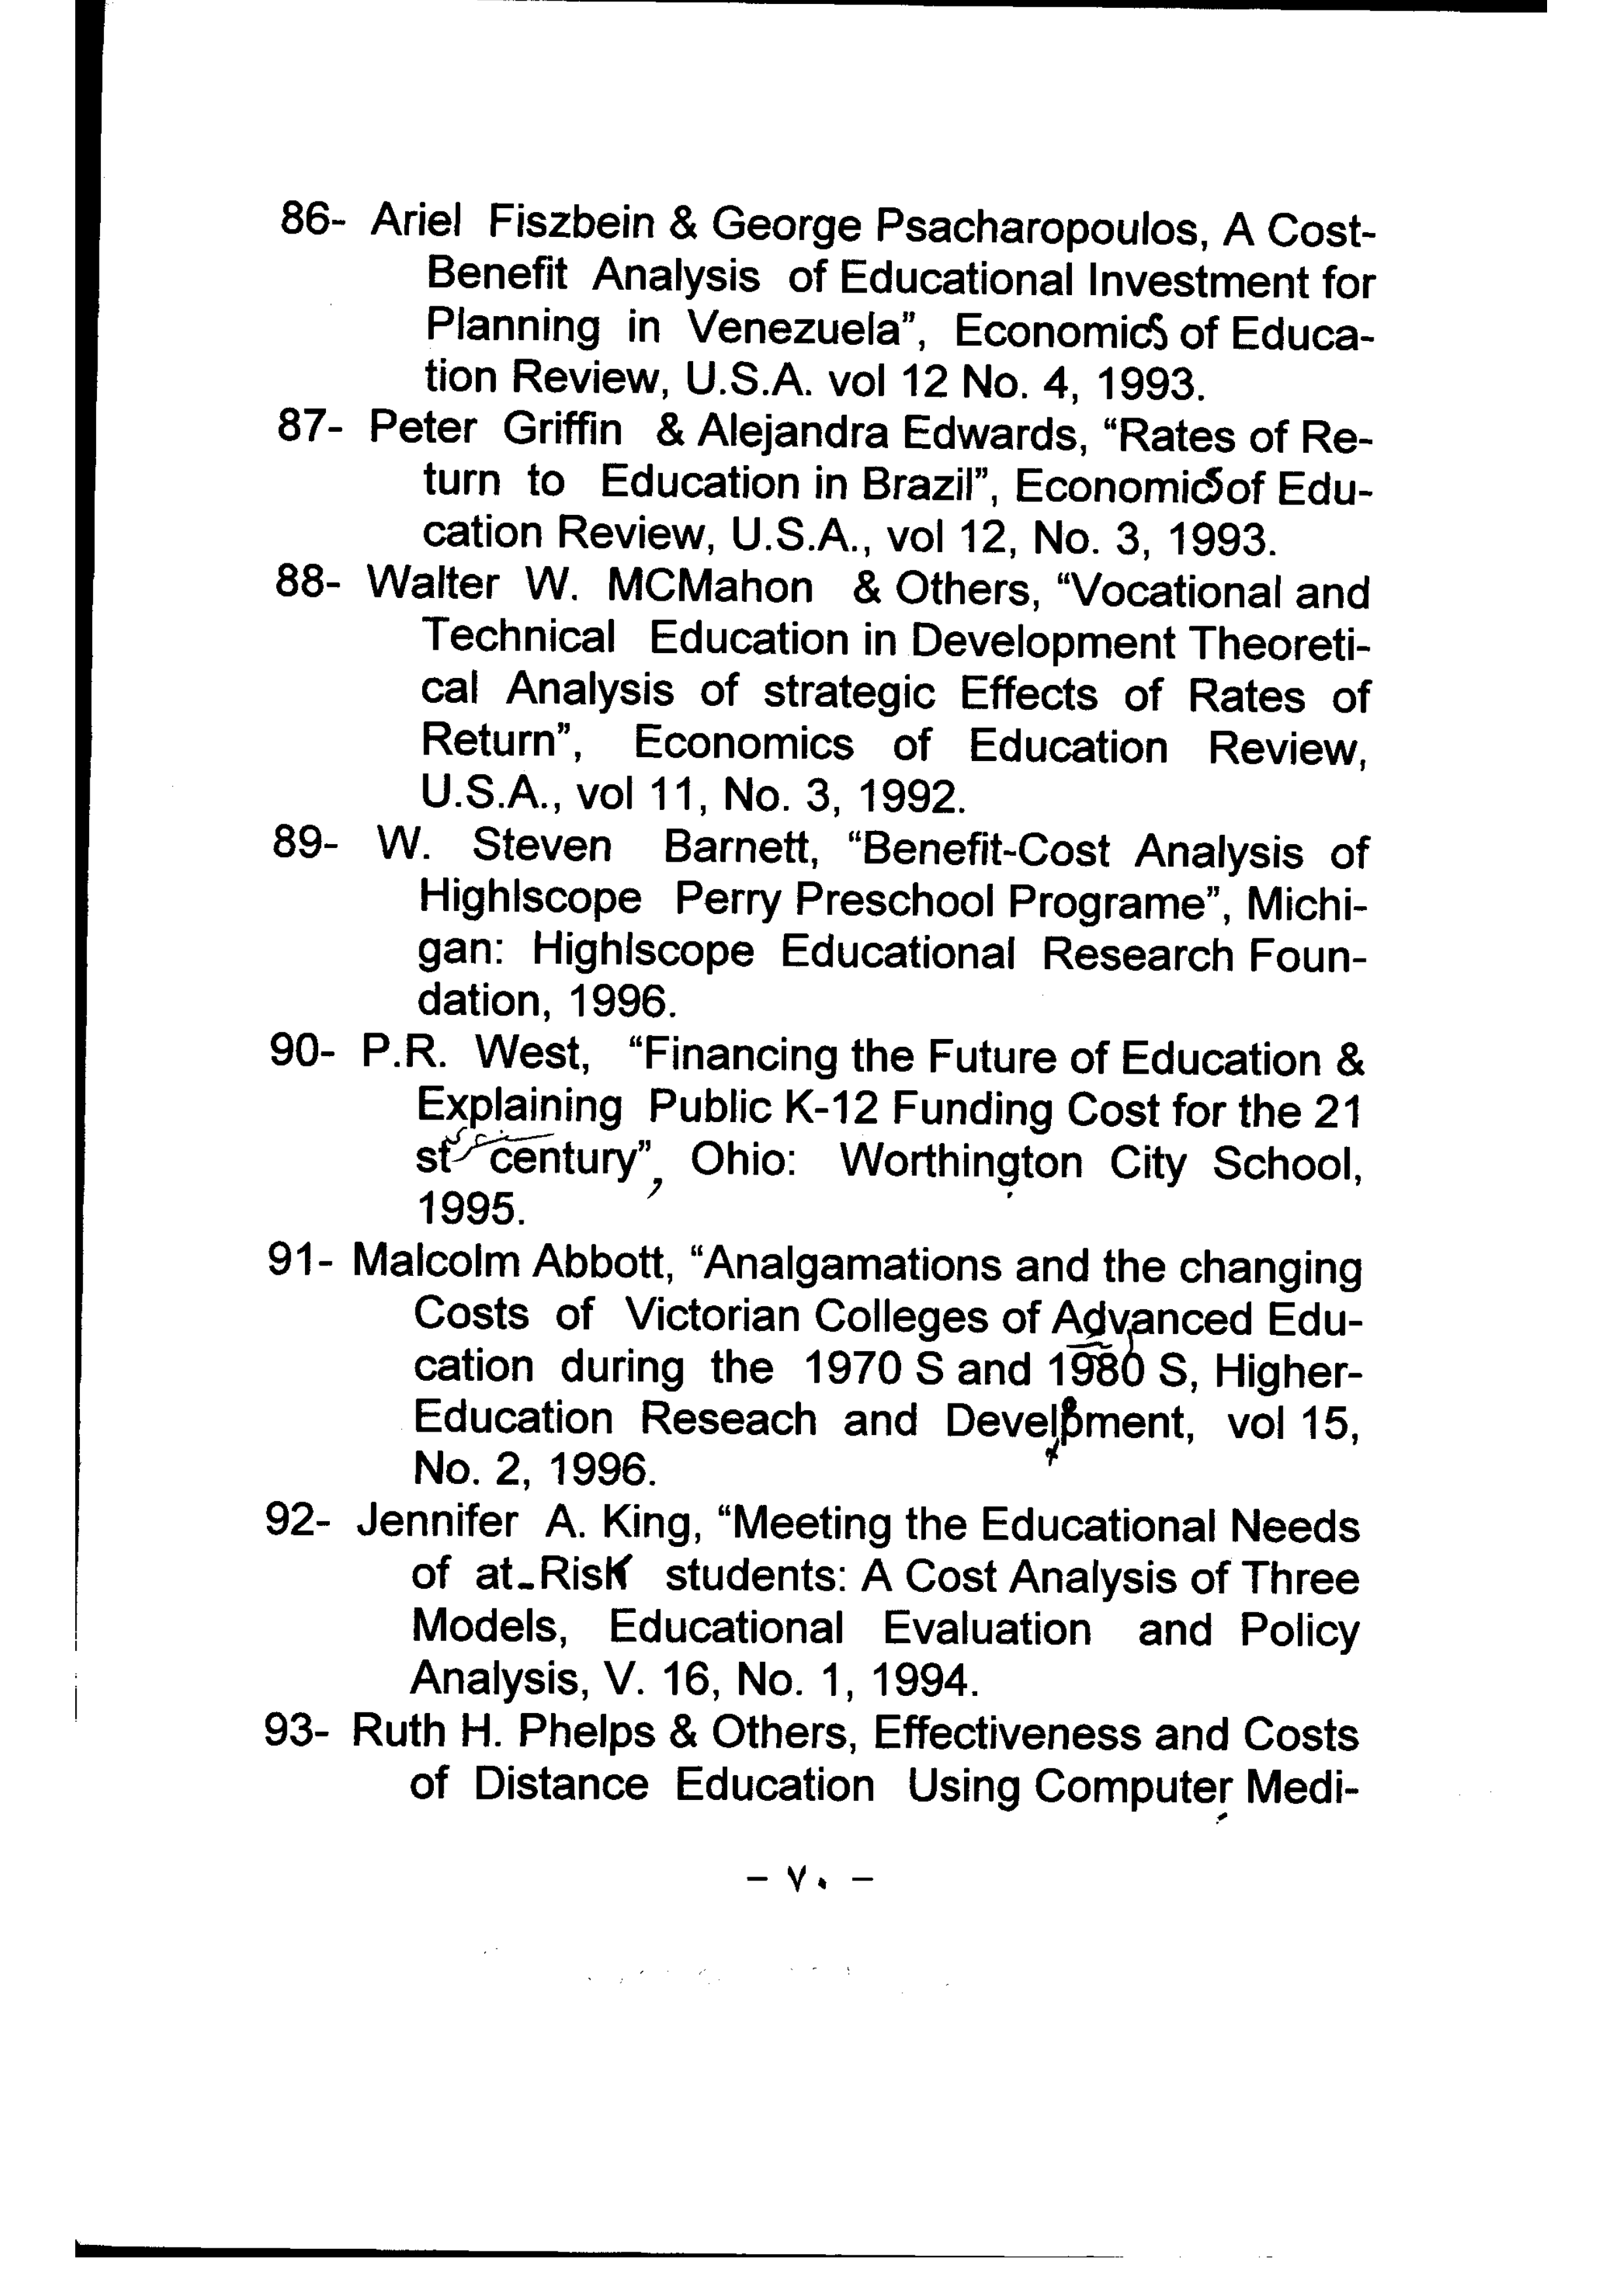 86- Ariel Fiszbein & George Psacharopoulos, A Cost-
Benefit Analysis of Educational Investment for
Planning in Venezuela”, Economics of Educa-
tion Review, U.S.A. vol 12 No. 4, 1993.
87- Peter Griffin & Alejandra Edwards, “Rates of Re-
turn to Education in Brazil”, Economics of Edu-
cation Review, U.S.A., vol 12, No. 3, 1993.
88- Walter W. MCMahon & Others, “Vocational and
Technical Education in Development Theoreti-
cal Analysis of strategic Effects of Rates of
Return”, Economics of Education Review,
U.S.A., vol 11, No. 3, 1992.
89- W. Steven Barnett, “Benefit-Cost Analysis of
Highlscope Perry Preschool Programe”, Michi-
gan: Highlscope Educational Research Foun-
dation, 1996.
90- P.R. West, “Financing the Future of Education &
Explaining Public K-12 Funding Cost for the 21
st century”, Ohio: Worthington City School,
1995.
91- Malcolm Abbott, “Analgamations and the changing
Costs of Victorian Colleges of Advanced Edu-
cation during the 1970 S and 1980 S, Higher-
Education Reseach and Development, vol 15,
No. 2, 1996.
92- Jennifer A. King, “Meeting the Educational Needs
of at-Risk students: A Cost Analysis of Three
Models, Educational Evaluation and Policy
Analysis, V. 16, No. 1, 1994.
93- Ruth H. Phelps & Others, Effectiveness and Costs
of Distance Education Using Computer Medi-
– ٧٠ –